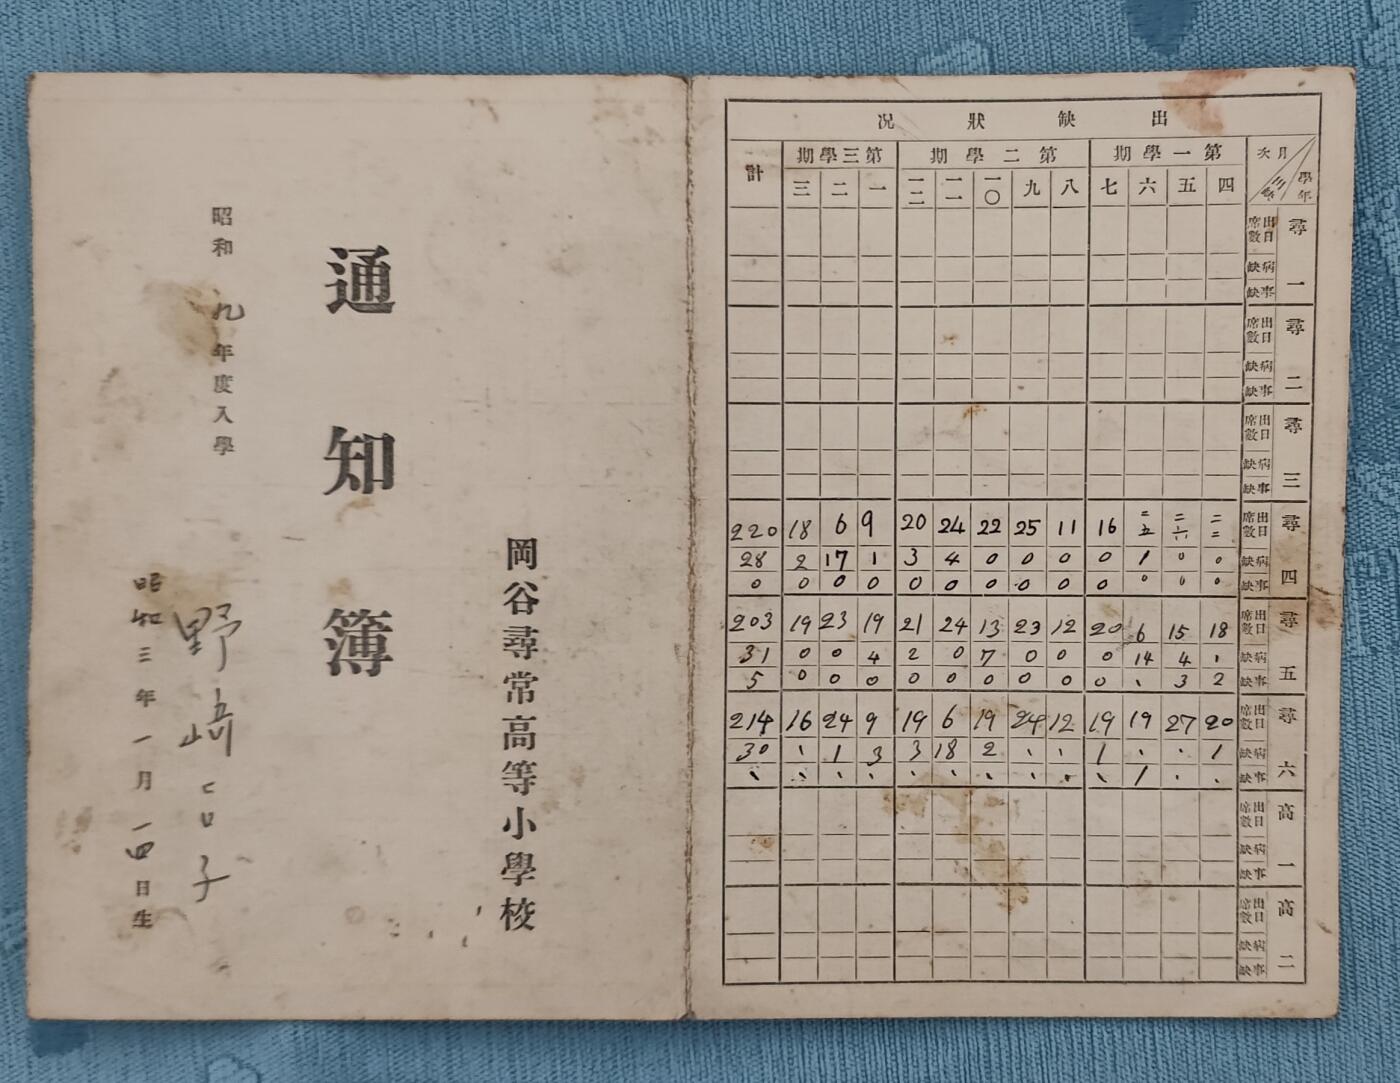 岡谷尋常高等小學校
通知簿
昭和九年度入學
野﨑
子
昭和三年一月一四日生
出缺狀况
學年 月次 第一學期 第二學期 第三學期 計
四 五 六 七 八 九 一〇 一一 一二 一 二 三
尋一 出席日數
病缺
事缺
尋二 出席日數
病缺
事缺
尋三 出席日數
病缺
事缺
尋四 出席日數 二二 二六 二五 16 11 25 22 24 20 9 6 18 220
病缺 0 0 1 0 0 0 0 4 3 1 17 2 28
事缺 0 0 0 0 0 0 0 0 0 0 0 0 0
尋五 出席日數 18 15 6 20 12 23 13 24 21 19 23 19 203
病缺 、 4 14 0 0 0 7 0 2 4 0 0 31
事缺 2 3 、 0 0 0 0 0 0 0 0 0 5
尋六 出席日數 20 27 19 19 12 24 19 6 19 9 24 16 214
病缺 1 、 、 1 、 、 2 18 3 3 1 、 30
事缺 、 、 1 、 、 、 、 、 、 、 、 、 、
高一 出席日數
病缺
事缺
高二 出席日數
病缺
事缺